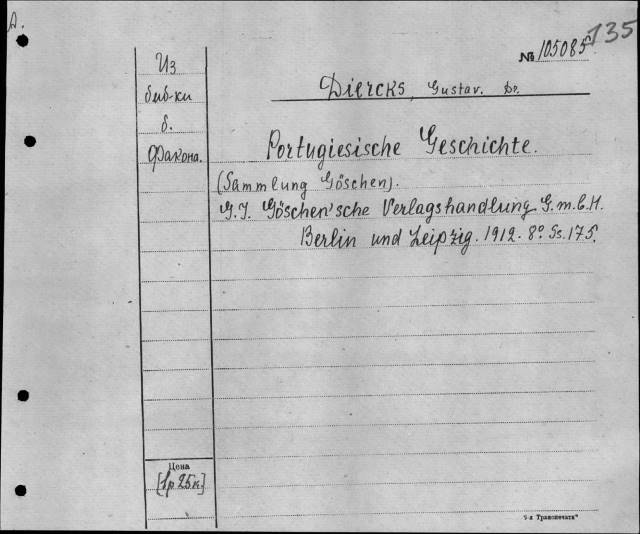 D.
135
№ 105085
Diercks, Gustav. Dr.
Из
биб-ки
б.
Факона.
Portugiesische Geschichte.
(Sammlung Göschen).
G.J. Göschen'sche Verlagshandlung G.m.b.H.
Berlin und Leipzig. 1912. 8º. Ss. 175.
Цена
[1р 25к]
"я Транспечати"